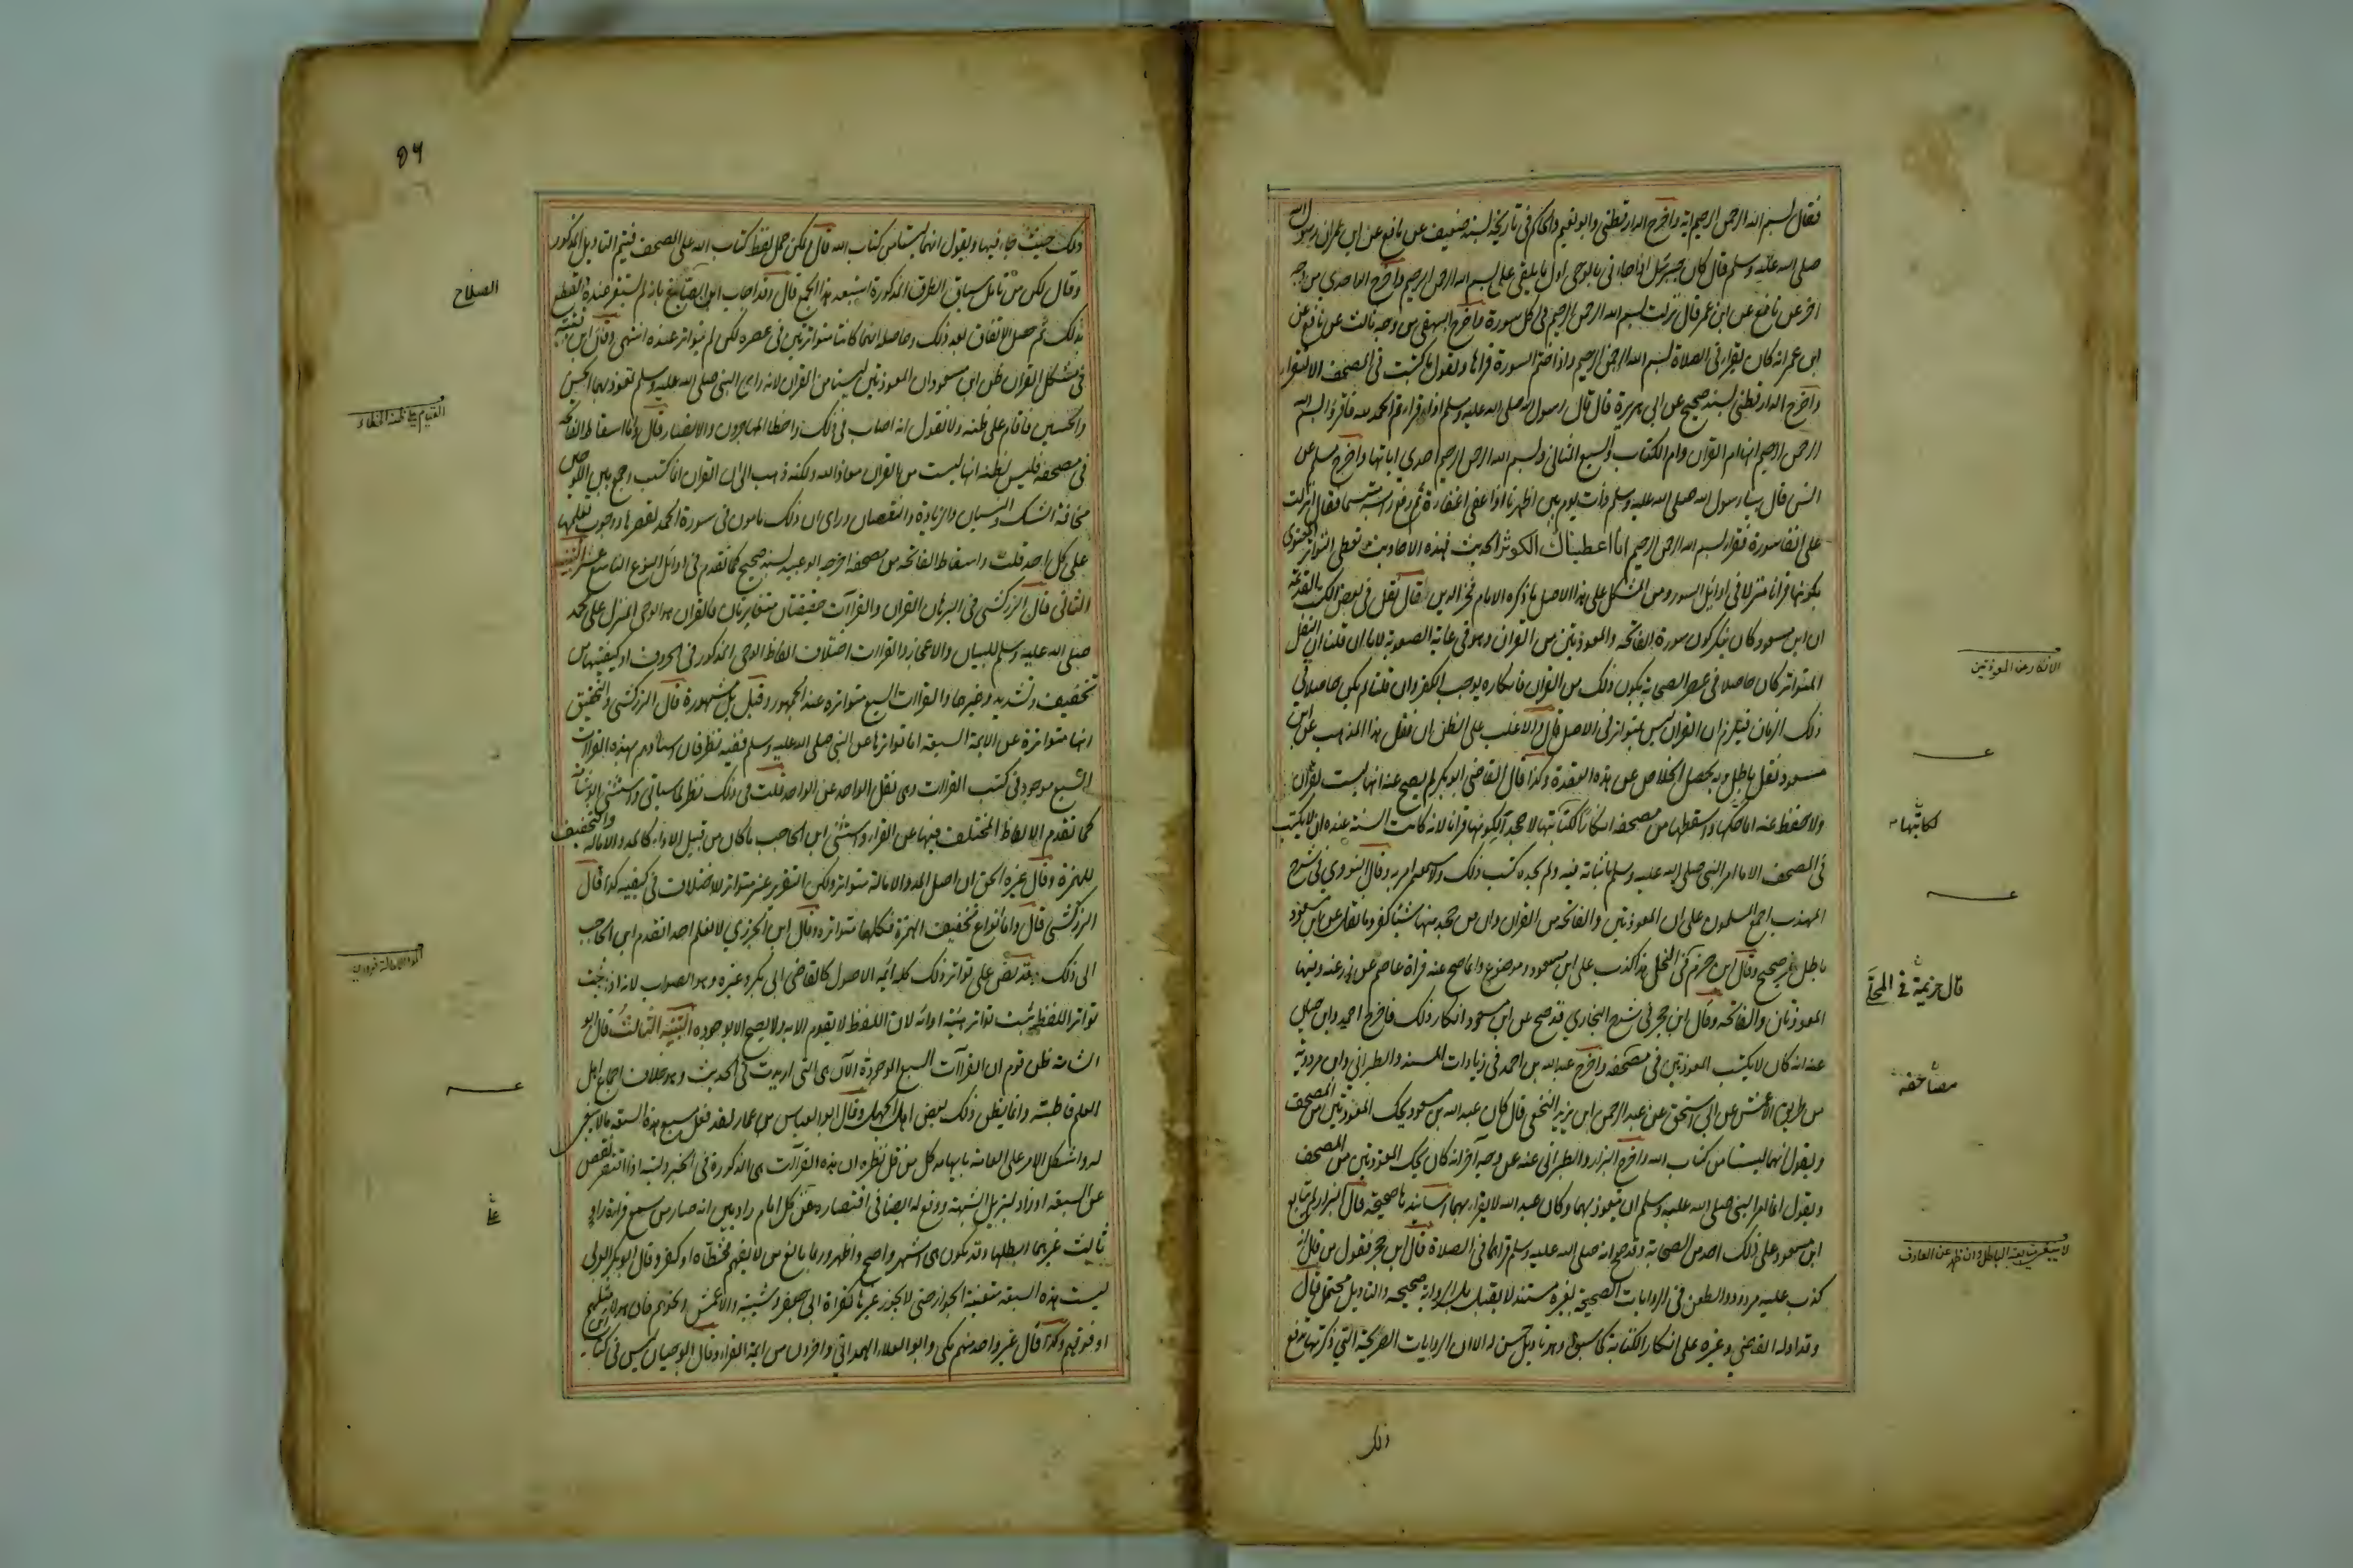 فقال بسم الله الرحمن الرحيم اية واخرج الدارقطني وابو نعيم والحاكم في تاريخه بسند ضعيف عن نافع عن ابن عمر ان رسول الله
صلى الله عليه وسلم قال كان جبرئيل اذا جاءني بالوحي اول ما يلقي علي بسم الله الرحمن الرحيم واخرج الواحدي من وجه
اخر عن نافع عن ابن عمر قال نزلت بسم الله الرحمن الرحيم في كل سورة واخرج البيهقي من وجه ثالث عن نافع عن
ابن عمر انه كان يقرأ في الصلاة بسم الله الرحمن الرحيم واذا ختم السورة قرأها ويقول ما كتبت في المصحف الا لتقرأ
واخرج الدارقطني بسند صحيح عن ابي هريرة قال قال رسول الله صلى الله عليه وسلم اذا قرأتم الحمد لله فاقرؤا بسم الله
الرحمن الرحيم انها ام القرآن وام الكتاب والسبع المثاني وبسم الله الرحمن الرحيم احدى اياتها واخرج مسلم عن
انس قال بينا رسول الله صلى الله عليه وسلم ذات يوم بين اظهرنا اذ اغفى اغفاءة ثم رفع رأسه متبسما فقال انزلت
علي انفا سورة فقرأ بسم الله الرحمن الرحيم انا اعطيناك الكوثر الحديث فهذه الاحاديث تعطي التواتر المعنوي
بكونها قرآنا منزلا في اوائل السور ومن المشكل على هذا الاصل ما ذكره الامام فخر الدين قال نقل في بعض الكتب القديمة
ان ابن مسعود كان ينكر كون سورة الفاتحة والمعوذتين من القرآن وهو في غاية الصعوبة لانا ان قلنا ان النقل
المتواتر كان حاصلا في عصر الصحابة بكون ذلك من القرآن فانكاره يوجب الكفر وان قلنا لم يكن حاصلا في
ذلك الزمان فيلزم ان القرآن ليس بمتواتر في الاصل قال والاغلب على الظن ان نقل هذا المذهب عن ابن
مسعود نقل باطل وبه يحصل الخلاص عن هذه العقدة وكذا قال القاضي ابو بكر لم يصح عنه انها ليست بقرآن
ولا حفظ عنه انما حكها واسقطها من مصحفه انكارا لكتابتها لا جحدا لكونها قرآنا لانه كانت السنة عنده ان لا يكتب
في المصحف الا ما امر النبي صلى الله عليه وسلم باثباته فيه ولم يجده كتب ذلك ولا سمعه امر به وقال النووي في شرح
المهذب اجمع المسلمون على ان المعوذتين والفاتحة من القرآن وان من جحد منها شيئا كفر وما نقل عن ابن مسعود
باطل ليس بصحيح وقال ابن حزم في المحلى هذا كذب على ابن مسعود وموضوع وانما صح عنه قراة عاصم عن زر عنه وفيها
المعوذتان والفاتحة وقال ابن حجر في شرح البخاري قد صح عن ابن مسعود انكار ذلك فاخرج احمد وابن حبان
عنه انه كان لا يكتب المعوذتين في مصحفه واخرج عبد الله بن احمد في زيادات المسند والطبراني وابن مردويه
من طريق الاعمش عن ابي اسحق عن عبد الرحمن بن يزيد النخعي قال كان عبد الله بن مسعود يحك المعوذتين من المصحف
ويقول انهما ليستا من كتاب الله واخرج البزار والطبراني عنه عن وجه آخر انه كان يحك المعوذتين من المصحف
ويقول انما امر النبي صلى الله عليه وسلم ان يتعوذ بهما وكان عبد الله لا يقرأ بهما اسانيدها صحيحة قال البزار لم يتابع
ابن مسعود على ذلك احد من الصحابة وقد صح انه صلى الله عليه وسلم قرأهما في الصلاة قال ابن حجر فقول من قال انه
كذب عليه مردود والطعن في الروايات الصحيحة بغير مستند لا يقبل بل الرواية صحيحة والتاويل محتمل قال
وقد اوله القاضي وغيره على انكار الكتابة كما سبق وهو تاويل حسن الا ان الروايات الصريحة التي ذكرتها تدفع
ذلك
الانكار عن المعوذتين
لكتابتها
قال حزيمة في المحلى
مصاحفه
٥٦
ذلك حيث جاء فيها ويقول انهما ليستا من كتاب الله قال ويمكن حمل لفظ كتاب الله على المصحف فيتم التاويل المذكور
وقال لكن من تامل سياق الطرق المذكورة استبعد هذا الجمع قال وقد اجاب ابن الصباغ بانه لم يستقر عنده القطع
بذلك ثم حصل الاتفاق بعد ذلك وحاصله انهما كانتا متواترتين في عصره لكن لم يتواتر عنده انتهى وقال ابن قتيبة
في مشكل القرآن ظن ابن مسعود ان المعوذتين ليستا من القرآن لانه راى النبي صلى الله عليه وسلم يعوذ بهما الحسن
والحسين فاقام على ظنه ولا نقول انه اصاب في ذلك واخطا المهاجرون والانصار قال واما اسقاط الفاتحة
في مصحفه فليس لظنه انها ليست من القرآن معاذ الله ولكنه ذهب الى ان القرآن انما كتب وجمع بين اللوحين
مخافة الشك والنسيان والزيادة والنقصان وراى ان ذلك مامون في سورة الحمد لقصرها ووجوب تعلمها
على كل احد قلت واسقاط الفاتحة من مصحفه اخرجه ابو عبيد بسند صحيح كما تقدم في اوائل النوع التاسع عشر التنبيه
الثاني قال الزركشي في البرهان القرآن والقراآت حقيقتان متغايرتان فالقرآن هو الوحي المنزل على محمد
صلى الله عليه وسلم للبيان والاعجاز والقراآت اختلاف الفاظ الوحي المذكور في الحروف او كيفيتها من
تخفيف وتشديد وغيرها والقراآت السبع متواترة عند الجمهور وقيل بل مشهورة قال الزركشي والتحقيق
انها متواترة عن الائمة السبعة اما تواترها عن النبي صلى الله عليه وسلم ففيه نظر فان اسنادهم بهذه القراآت
السبع موجود في كتب القراآت وهي نقل الواحد عن الواحد قلت في ذلك نظر لما سياتي واستثنى ابو شامة
كما تقدم الالفاظ المختلف فيها عن القراء واستثنى ابن الحاجب ما كان من قبيل الاداء كالمد والامالة والتخفيف
للهمزة وقال غيره الحق ان اصل المد والامالة متواتر ولكن التقدير غير متواتر للاختلاف في كيفيته كذا قال
الزركشي قال واما انواع تخفيف الهمزة فكلها متواترة وقال ابن الجزري لا نعلم احدا تقدم ابن الحاجب
الى ذلك وقد نص على تواتر ذلك كله ائمة الاصول كالقاضي ابي بكر وغيره وهو الصواب لانه اذا ثبت
تواتر اللفظ ثبت تواتر هيئة ادائه لان اللفظ لا يقوم الا به ولا يصح الا بوجوده التنبيه الثالث قال ابو
شامة ظن قوم ان القراآت السبع الموجودة الآن هي التي اريدت في الحديث وهو خلاف اجماع اهل
العلم قاطبة وانما يظن ذلك بعض اهل الجهل وقال ابو العباس بن عمار لقد فعل مسبع هذه السبعة ما لا ينبغي
له واشكل الامر على العامة بايهامه كل من قل نظره ان هذه القراآت هي المذكورة في الخبر وليته اذا اقتصر نقص
عن السبعة او زاد ليزيل الشبهة ووقع له ايضا في اقتصاره عن كل امام راويين انه صار من سمع قراءة راو
ثالث غيرهما ابطلها وقد تكون هي اشهر واصح واظهر وربما بالغ من لا يفهم فخطأه او كفر وقال ابو بكر بن العربي
ليست هذه السبعة متعينة للجواز حتى لا يجوز غيرها كقراة ابي جعفر وشيبة والاعمش ونحوهم فان هولاء مثلهم
او فوقهم وكذا قال غير واحد منهم مكي وابو العلاء الهمداني واخرون من ائمة القراء وقال ابو حيان ليس في كتاب ابن
الصلاح
على